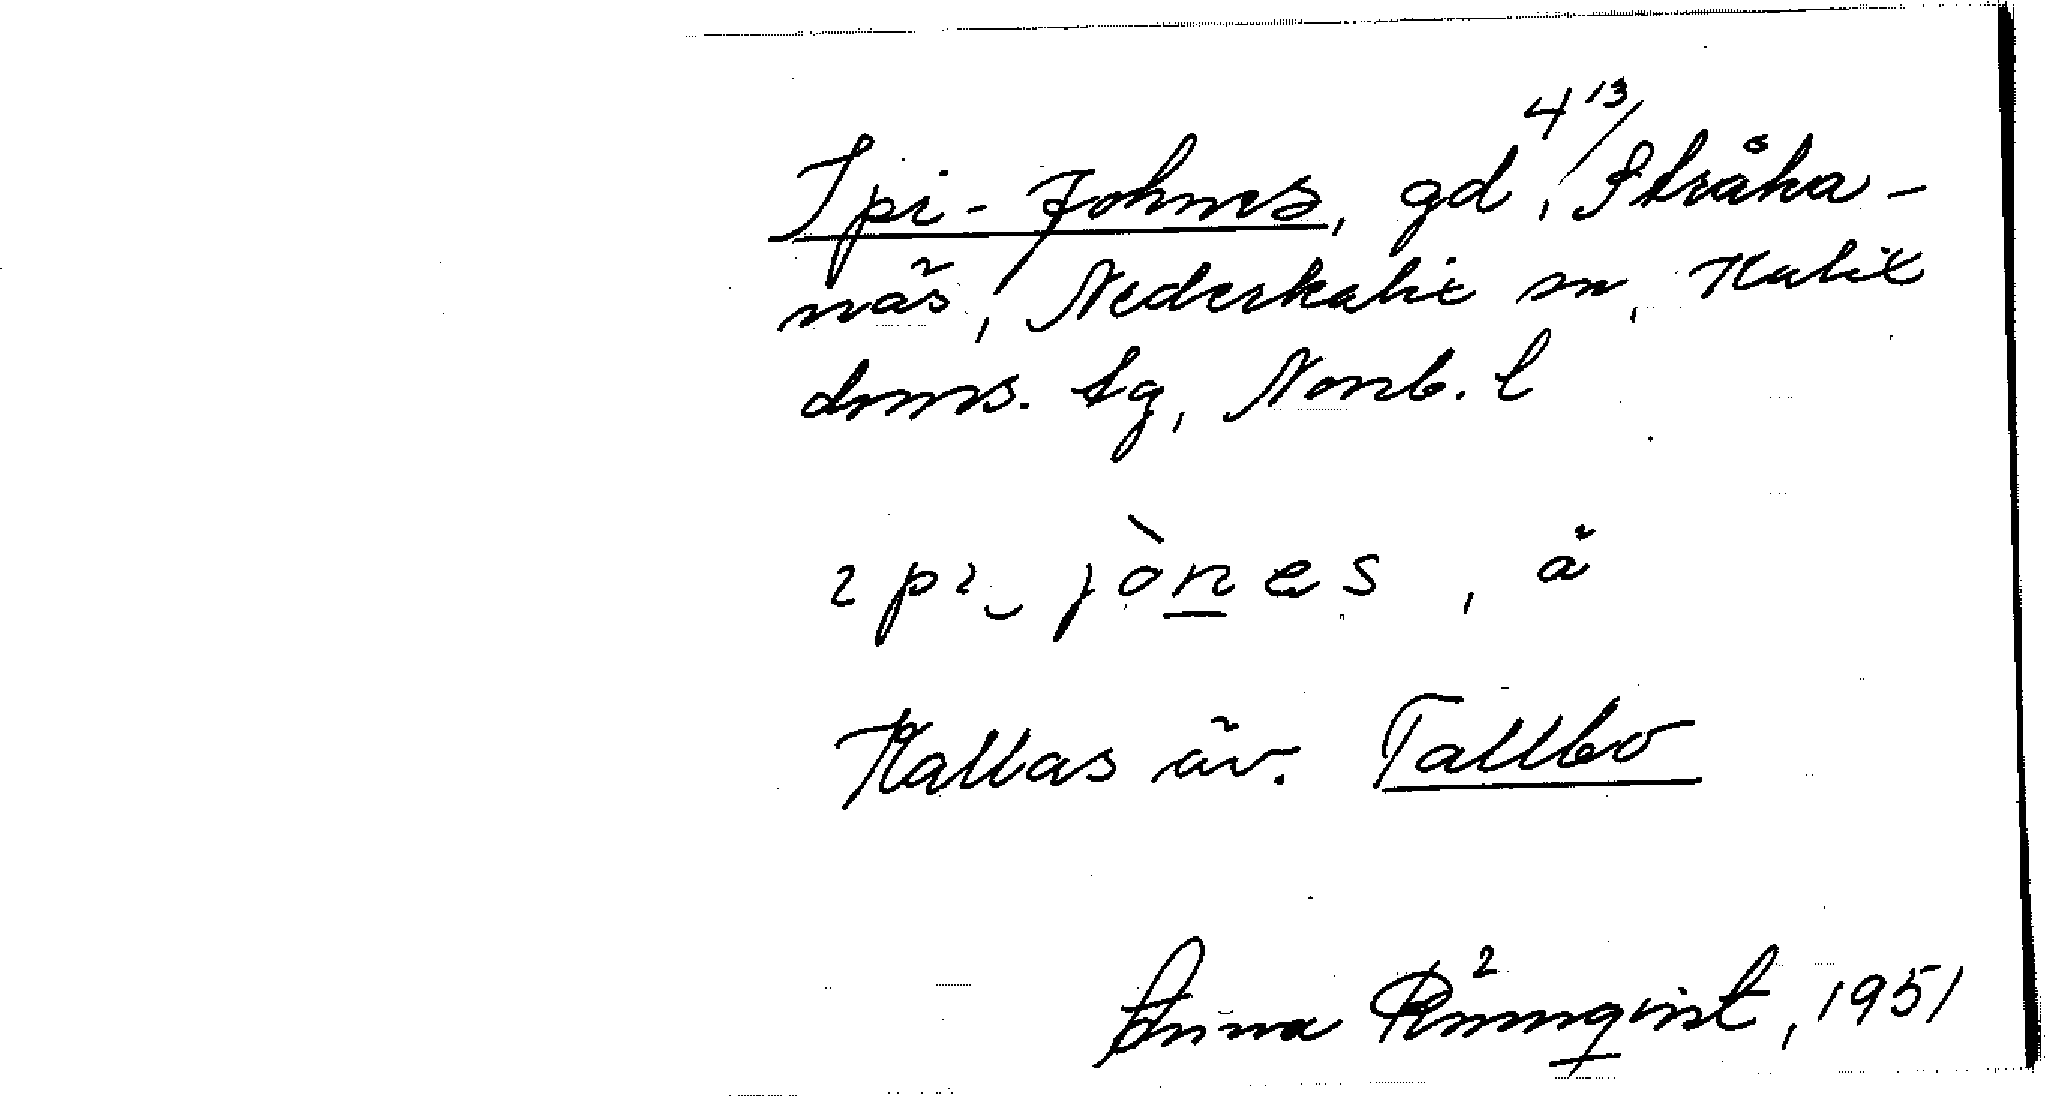 Ipi-Johnes, gd 4¹³/, Stråka-
näs, Nederkalix sn, Kalix
dmrs. tg, Norrb. l
ipi jònes, å
Kallas äv. Tallbo
Anna Rönnqvist, 1951